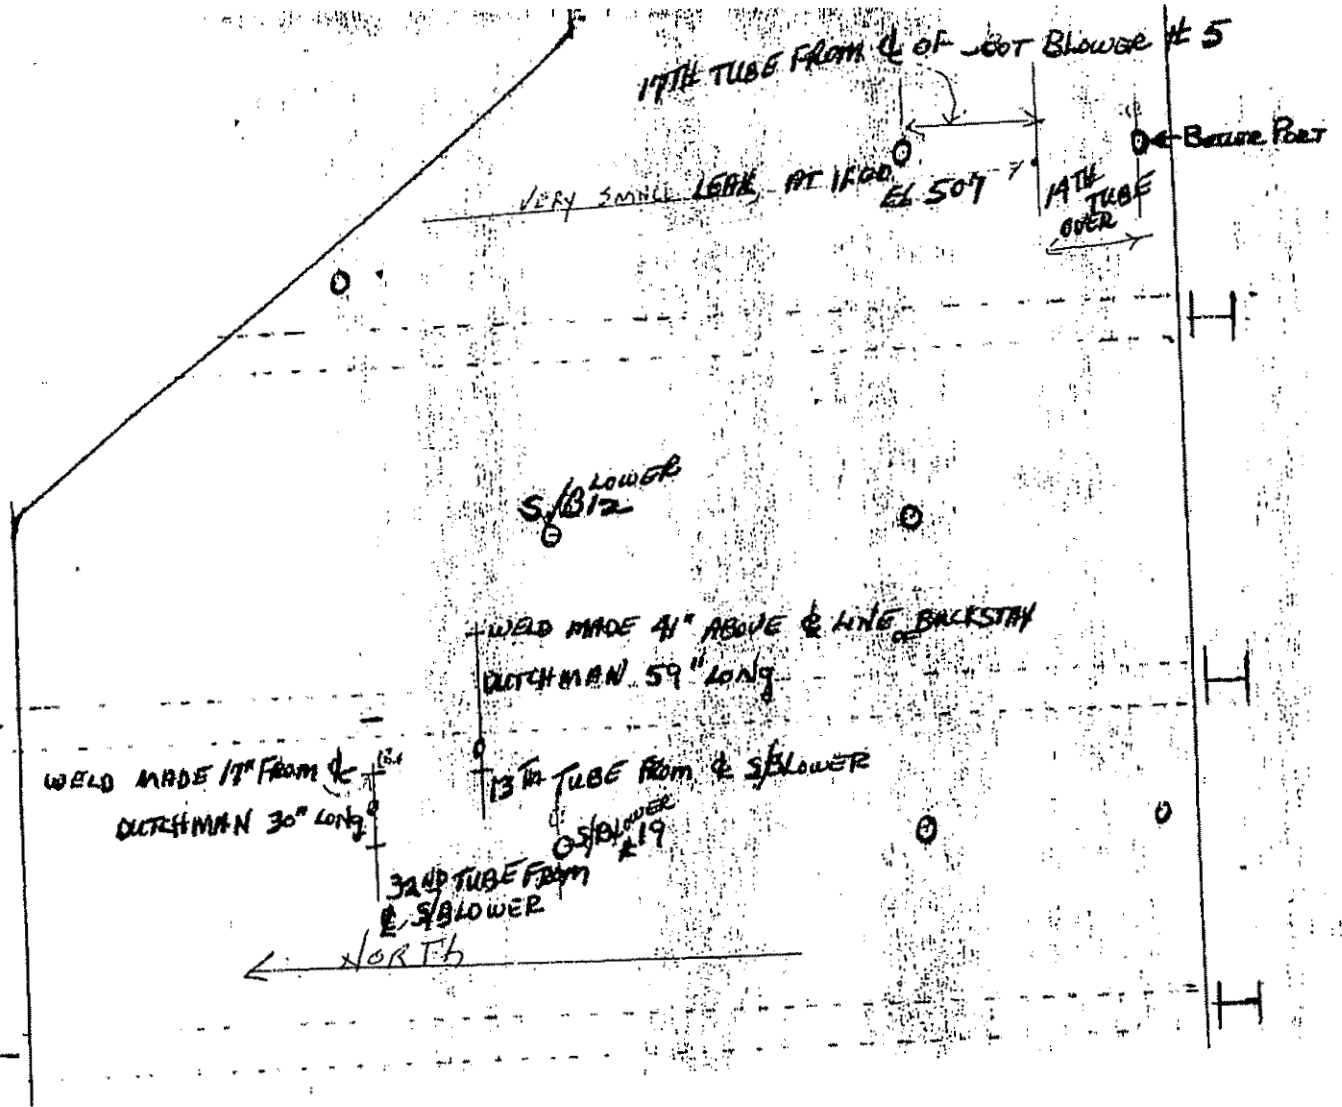 17TH TUBE FROM ℄ OF OOT BLOWER # 5
BOILER PORT
VERY SMALL LEAK, AT
EL 507'
14TH TUBE
OVER
S/BLOWER
12
WELD MADE 41" ABOVE ℄ LINE OF BACKSTAY
DUTCHMAN 59" LONG
WELD MADE 17" FROM ℄
DUTCHMAN 30" LONG
13TH TUBE FROM ℄ S/BLOWER
S/BLOWER
#19
32ND TUBE FROM
℄ S/BLOWER
NORTH